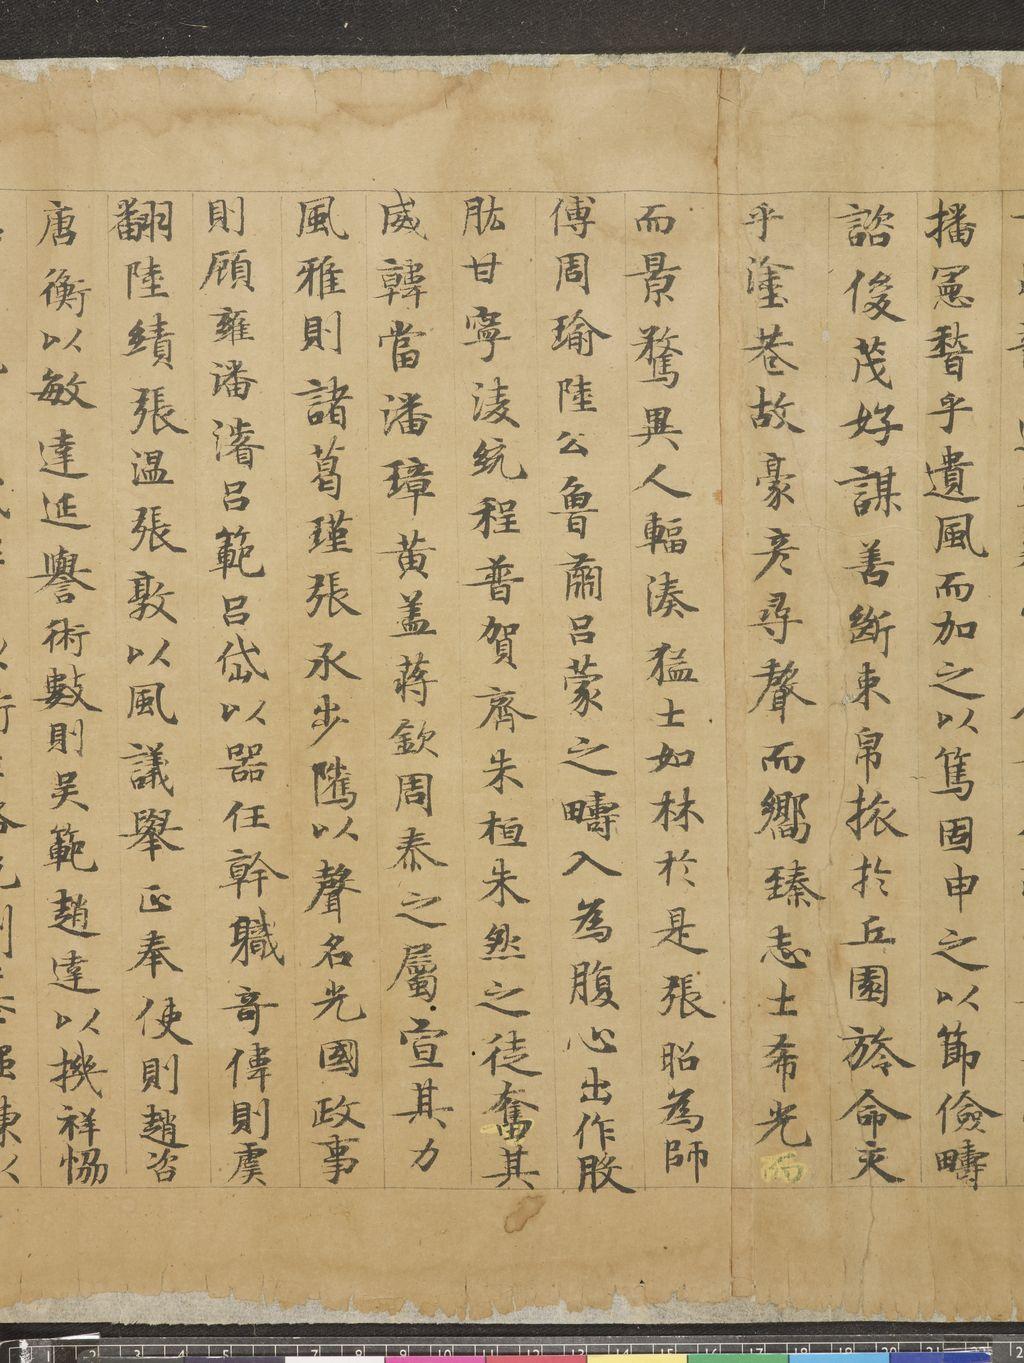 播憲稽乎遺風而加之以篤固申之以節儉疇
諮俊茂好謀善斷束帛旅於丘園旍命交
乎塗巷故豪彦尋聲而嚮臻志士希光而
而景騖異人輻湊猛士如林於是張昭為師
傅周瑜陸公魯肅呂蒙之疇入為腹心出作股
肱甘寧淩統程普賀齊朱桓朱然之徒奮其
威韓當潘璋黄盖蒋欽周泰之屬宣其力
風雅則諸葛瑾張承步隲以聲名光國政事
則顧雍潘濬呂範呂岱以器任幹職奇偉則虞
翻陸績張温張敦以風議舉正奉使則趙咨
唐衡以敏達延譽術數則吴範趙達以機祥恊